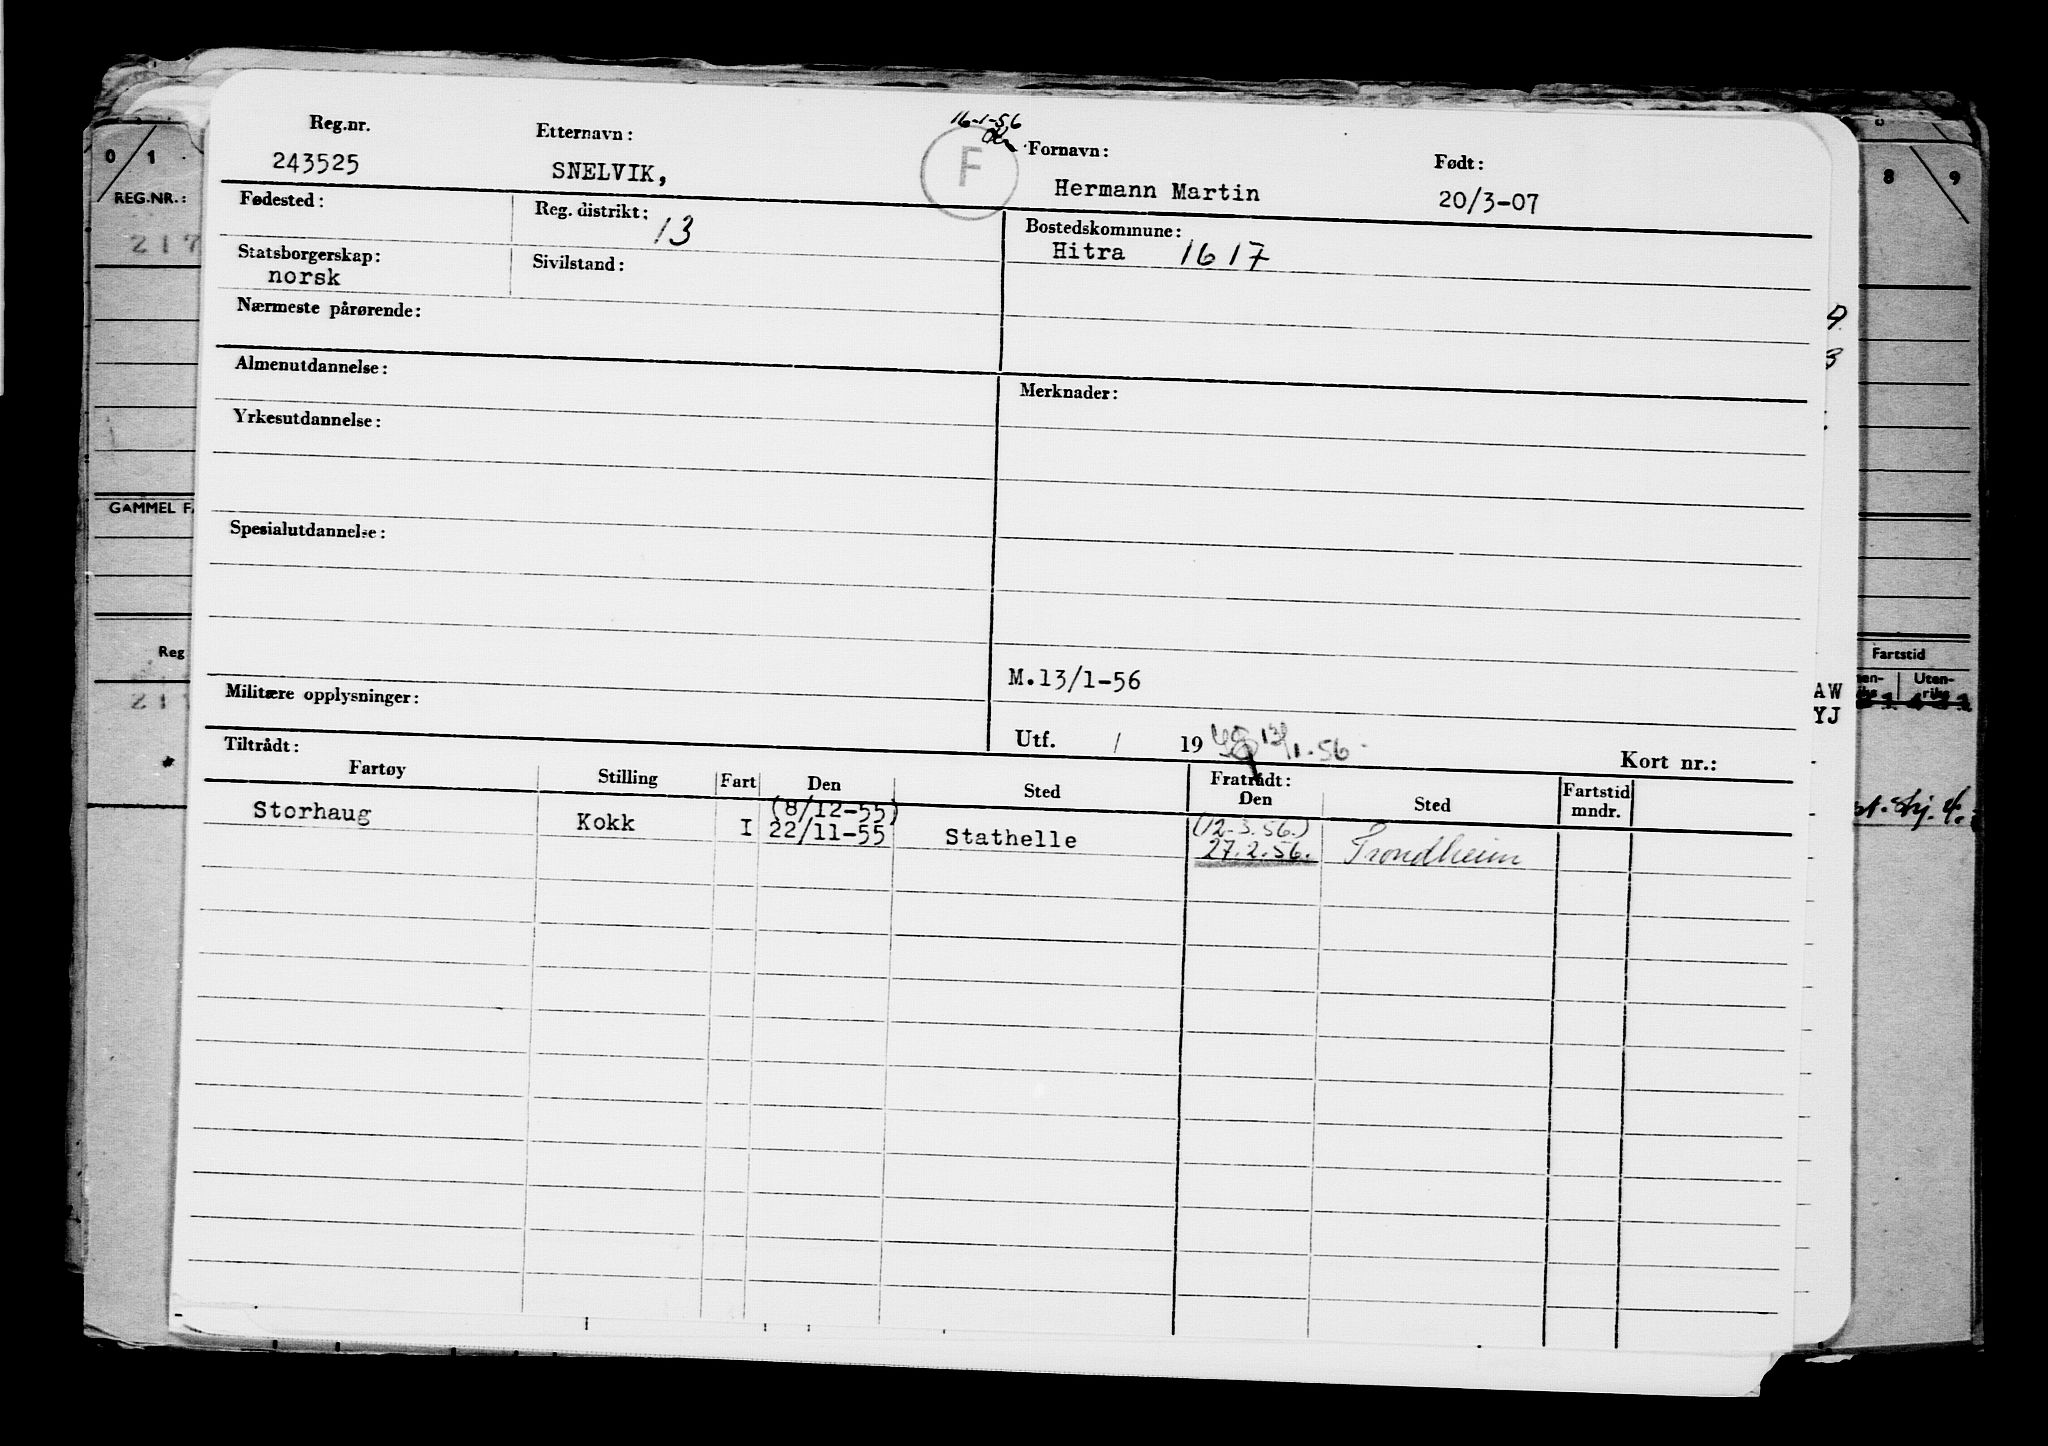 16-1-56
Reg.nr. Etternavn: F Fornavn: Født:
243525 SNELVIK, Hermann Martin 20/3-07
Fødested: Reg. distrikt: 13 Bostedskommune:
Hitra 1617
Statsborgerskap: Sivilstand:
norsk
Nærmeste pårørende:
Almenutdannelse: Merknader:
Yrkesutdannelse:
Spesialutdannelse:
M.13/1-56
Militære opplysninger:
Utf. / 19 13/1.56. Kort nr.:
Tiltrådt: Fratrådt:
Fartøy Stilling Fart Den Sted Den Sted Fartstid mndr.
(8/12-55) (12.3.56.)
Storhaug Kokk I 22/11-55 Stathelle 27.2.56. Trondheim
0 1
REG.NR.:
217
GAMMEL
Reg
8 9
Fartstid
Uten-
riks
AW
YJ